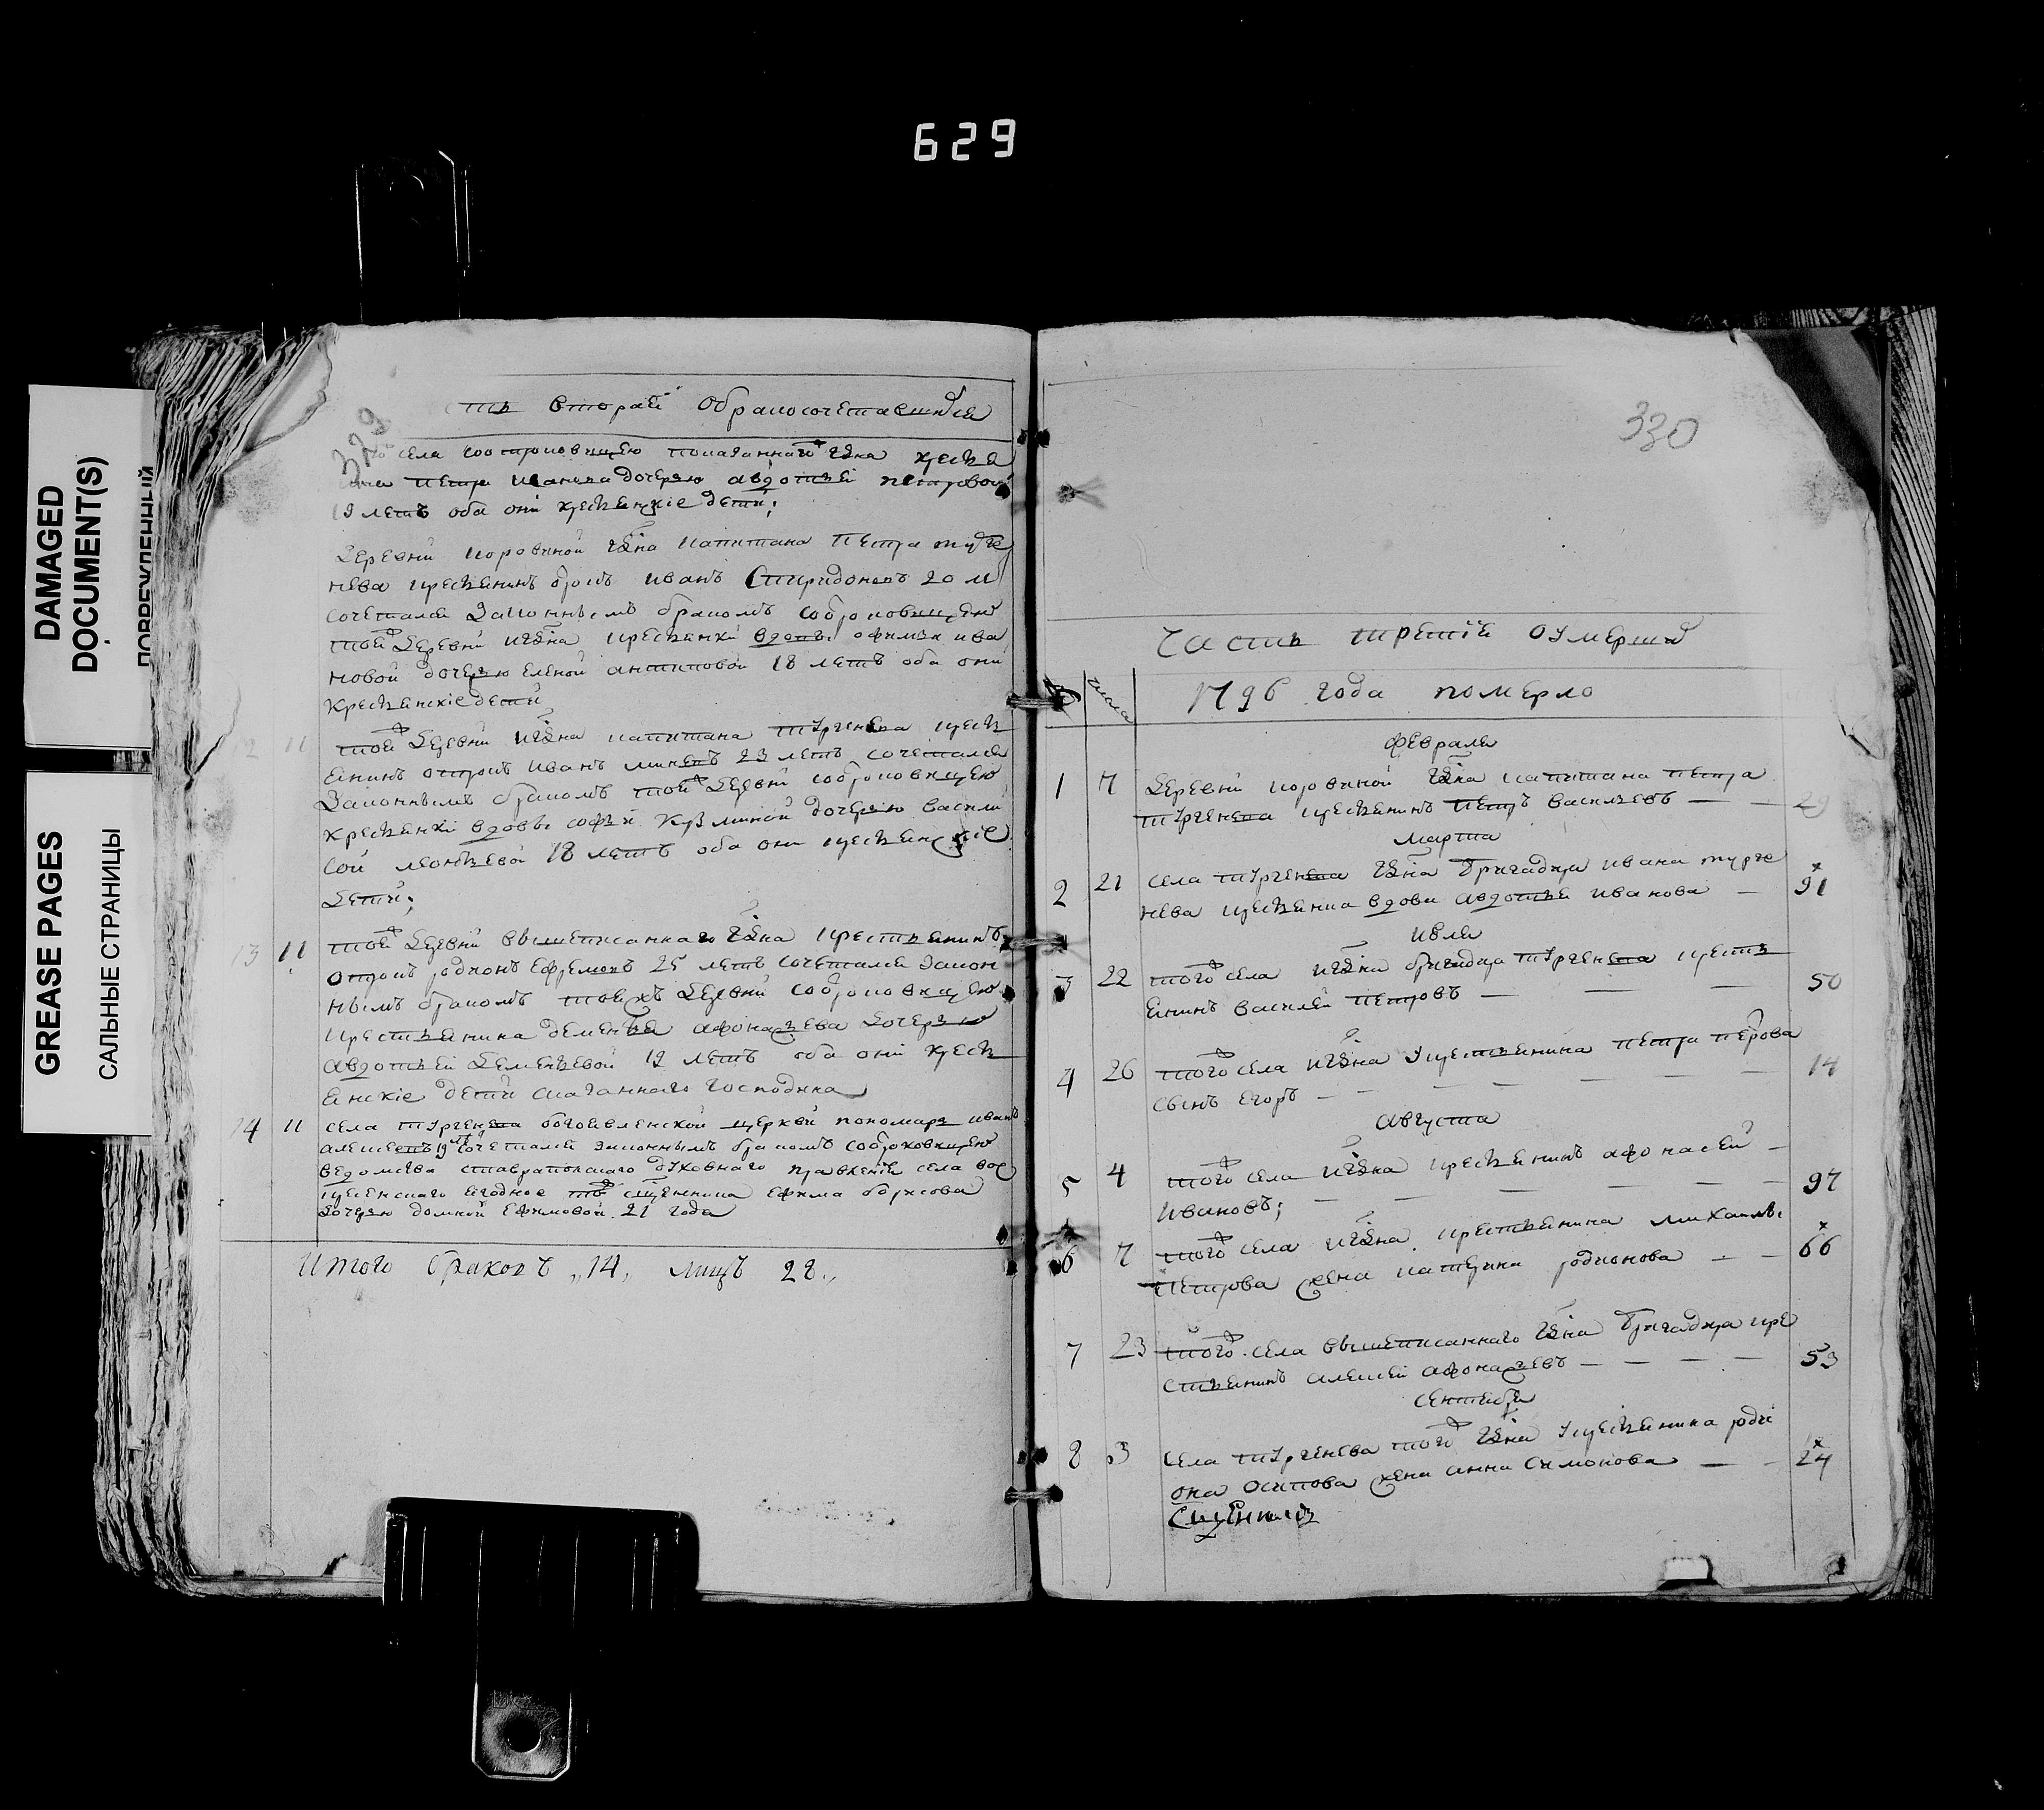 629
DAMAGED
DOCUMENT(S)
ПОВРЕЖДЕННЫЙ
GREASE PAGES
САЛЬНЫЕ СТРАНИЦЫ
329
сть вторая о бракосочетавшихся
села
Петра дочерью авдотьей петровой
19 летъ оба они крестьянские дети;
деревни коровиной гдна капитана Петра турге
нева крестьянинъ отрокъ иванъ Спиридоновъ 20 л
сочетался законнымъ бракомъ
той деревни гдна крестьянки вдовы офимьи ива
новой дочерью еленой антиповой 18 летъ оба они
крестьянские дети
12 11 той деревни гдна капитана тургенева крестъ
янинъ отрокъ иванъ 23 летъ сочетался
законнымъ бракомъ той деревни
крестьянки вдовы софьи дочерью васили
сой леонтьевой 18 летъ оба они крестьянские
дети;
13 11 той деревни вышеписаннаго гдна крестьянинъ
отрокъ родионъ ефремовъ 25 летъ сочетался закон
нымъ бракомъ деревни
крестьянина дементья афонасьева дочерью
авдотьей дементьевой 19 летъ оба они крестъ
янские дети господина
14 11 села тургенева богоявленской церкви пономарь иванъ
19 сочетался законнымъ бракомъ
ведомства ставропольскаго духовнаго правления села вос
кресенскаго ягодное тожъ священника ефима борисова
дочерью домной ефимовой 21 года
Итого браковъ „14, лицъ 28.,
330
Часть третия о умершихъ
числа
1796 года померло
февраля
1 7 деревни коровиной гдна капитана петра
тургенева крестьянинъ петръ васильевъ — — 29
марта
2 21 села тургенева гдна бригадира ивана турге
нева крестьянка вдова авдотья иванова — 91
июля
3 22 того села гдна бригадира тургенева кресть
янинъ василей петровъ — — — 50
4 26 того села гдна у крестьянина петра петрова
сынъ егоръ — — — — — 14
августа
5 4 того села гдна крестьянинъ афонасей —
ивановъ; — — — — — 97
6 7 того села гдна крестьянина михаилы
петрова жена катерина родионова — — 66
7 23 того села вышеписаннаго гдна бригадира кре
стьянинъ алексей афонасьевъ — — — — 53
сентября
8 3 села тургенева того гдна у крестьянина роди
она осипова жена анна симонова — — 24
Священникъ